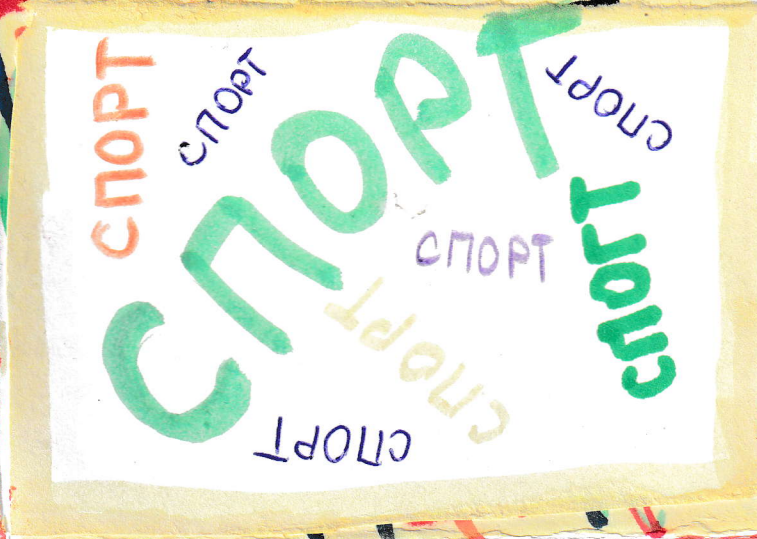 СПОРТ
СПОРТ
СПОРТ
СПОРТ
СПОРТ
СПОРТ
СПОРТ
СПОРТ